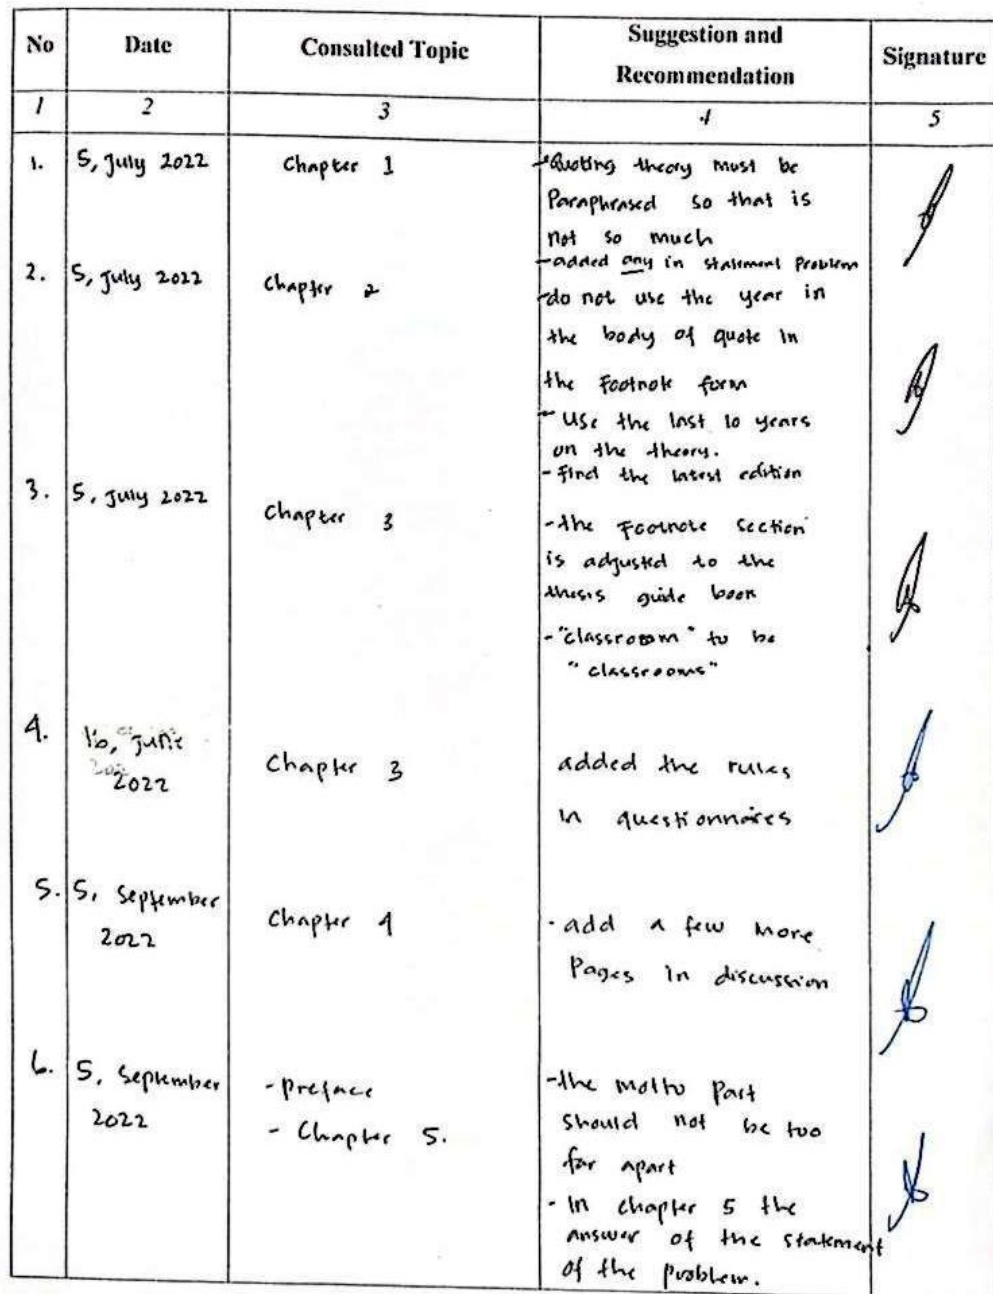 No Date Consulted Topic Suggestion and Recommendation Signature
1 2 3 4 5
1. 5, July 2022 Chapter 1 - Quoting theory must be
Paraphrased so that is
not so much
- added any in statement Problem
2. 5, July 2022 Chapter 2 - do not use the year in
the body of quote in
the Footnote form
- Use the last 10 years
on the theory.
- Find the latest edition
3. 5, July 2022 Chapter 3 - the Footnote section
is adjusted to the
thesis guide book
- "classroom" to be
"classrooms"
4. 16, June
2022 Chapter 3 added the rules
in questionnaires
5. 5, September
2022 Chapter 4 - add a few more
Pages in discussion
6. 5, September
2022 - preface
- Chapter 5.
- the motto part
should not be too
far apart
- In chapter 5 the
answer of the statement
of the problem.